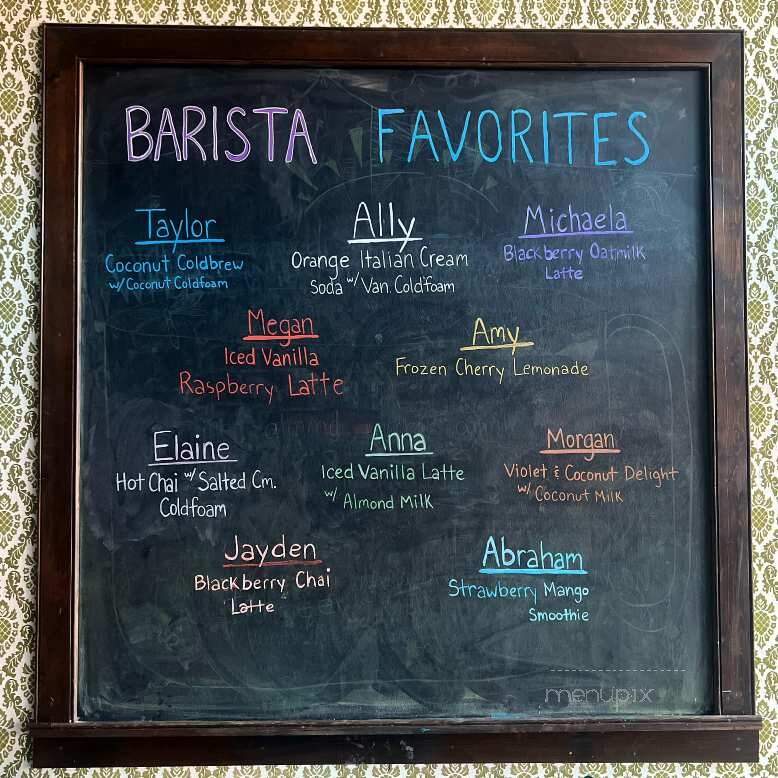 BARISTA FAVORITES
Taylor
Coconut Coldbrew
w/ Coconut Coldfoam
Ally
Orange Italian Cream
Soda w/ Van. Coldfoam
Michaela
Blackberry Oatmilk
Latte
Megan
Iced Vanilla
Raspberry Latte
Amy
Frozen Cherry Lemonade
Elaine
Hot Chai w/ Salted Cm.
Coldfoam
Anna
Iced Vanilla Latte
w/ Almond Milk
Morgan
Violet & Coconut Delight
w/ Coconut Milk
Jayden
Blackberry Chai
Latte
Abraham
Strawberry Mango
Smoothie
menupix